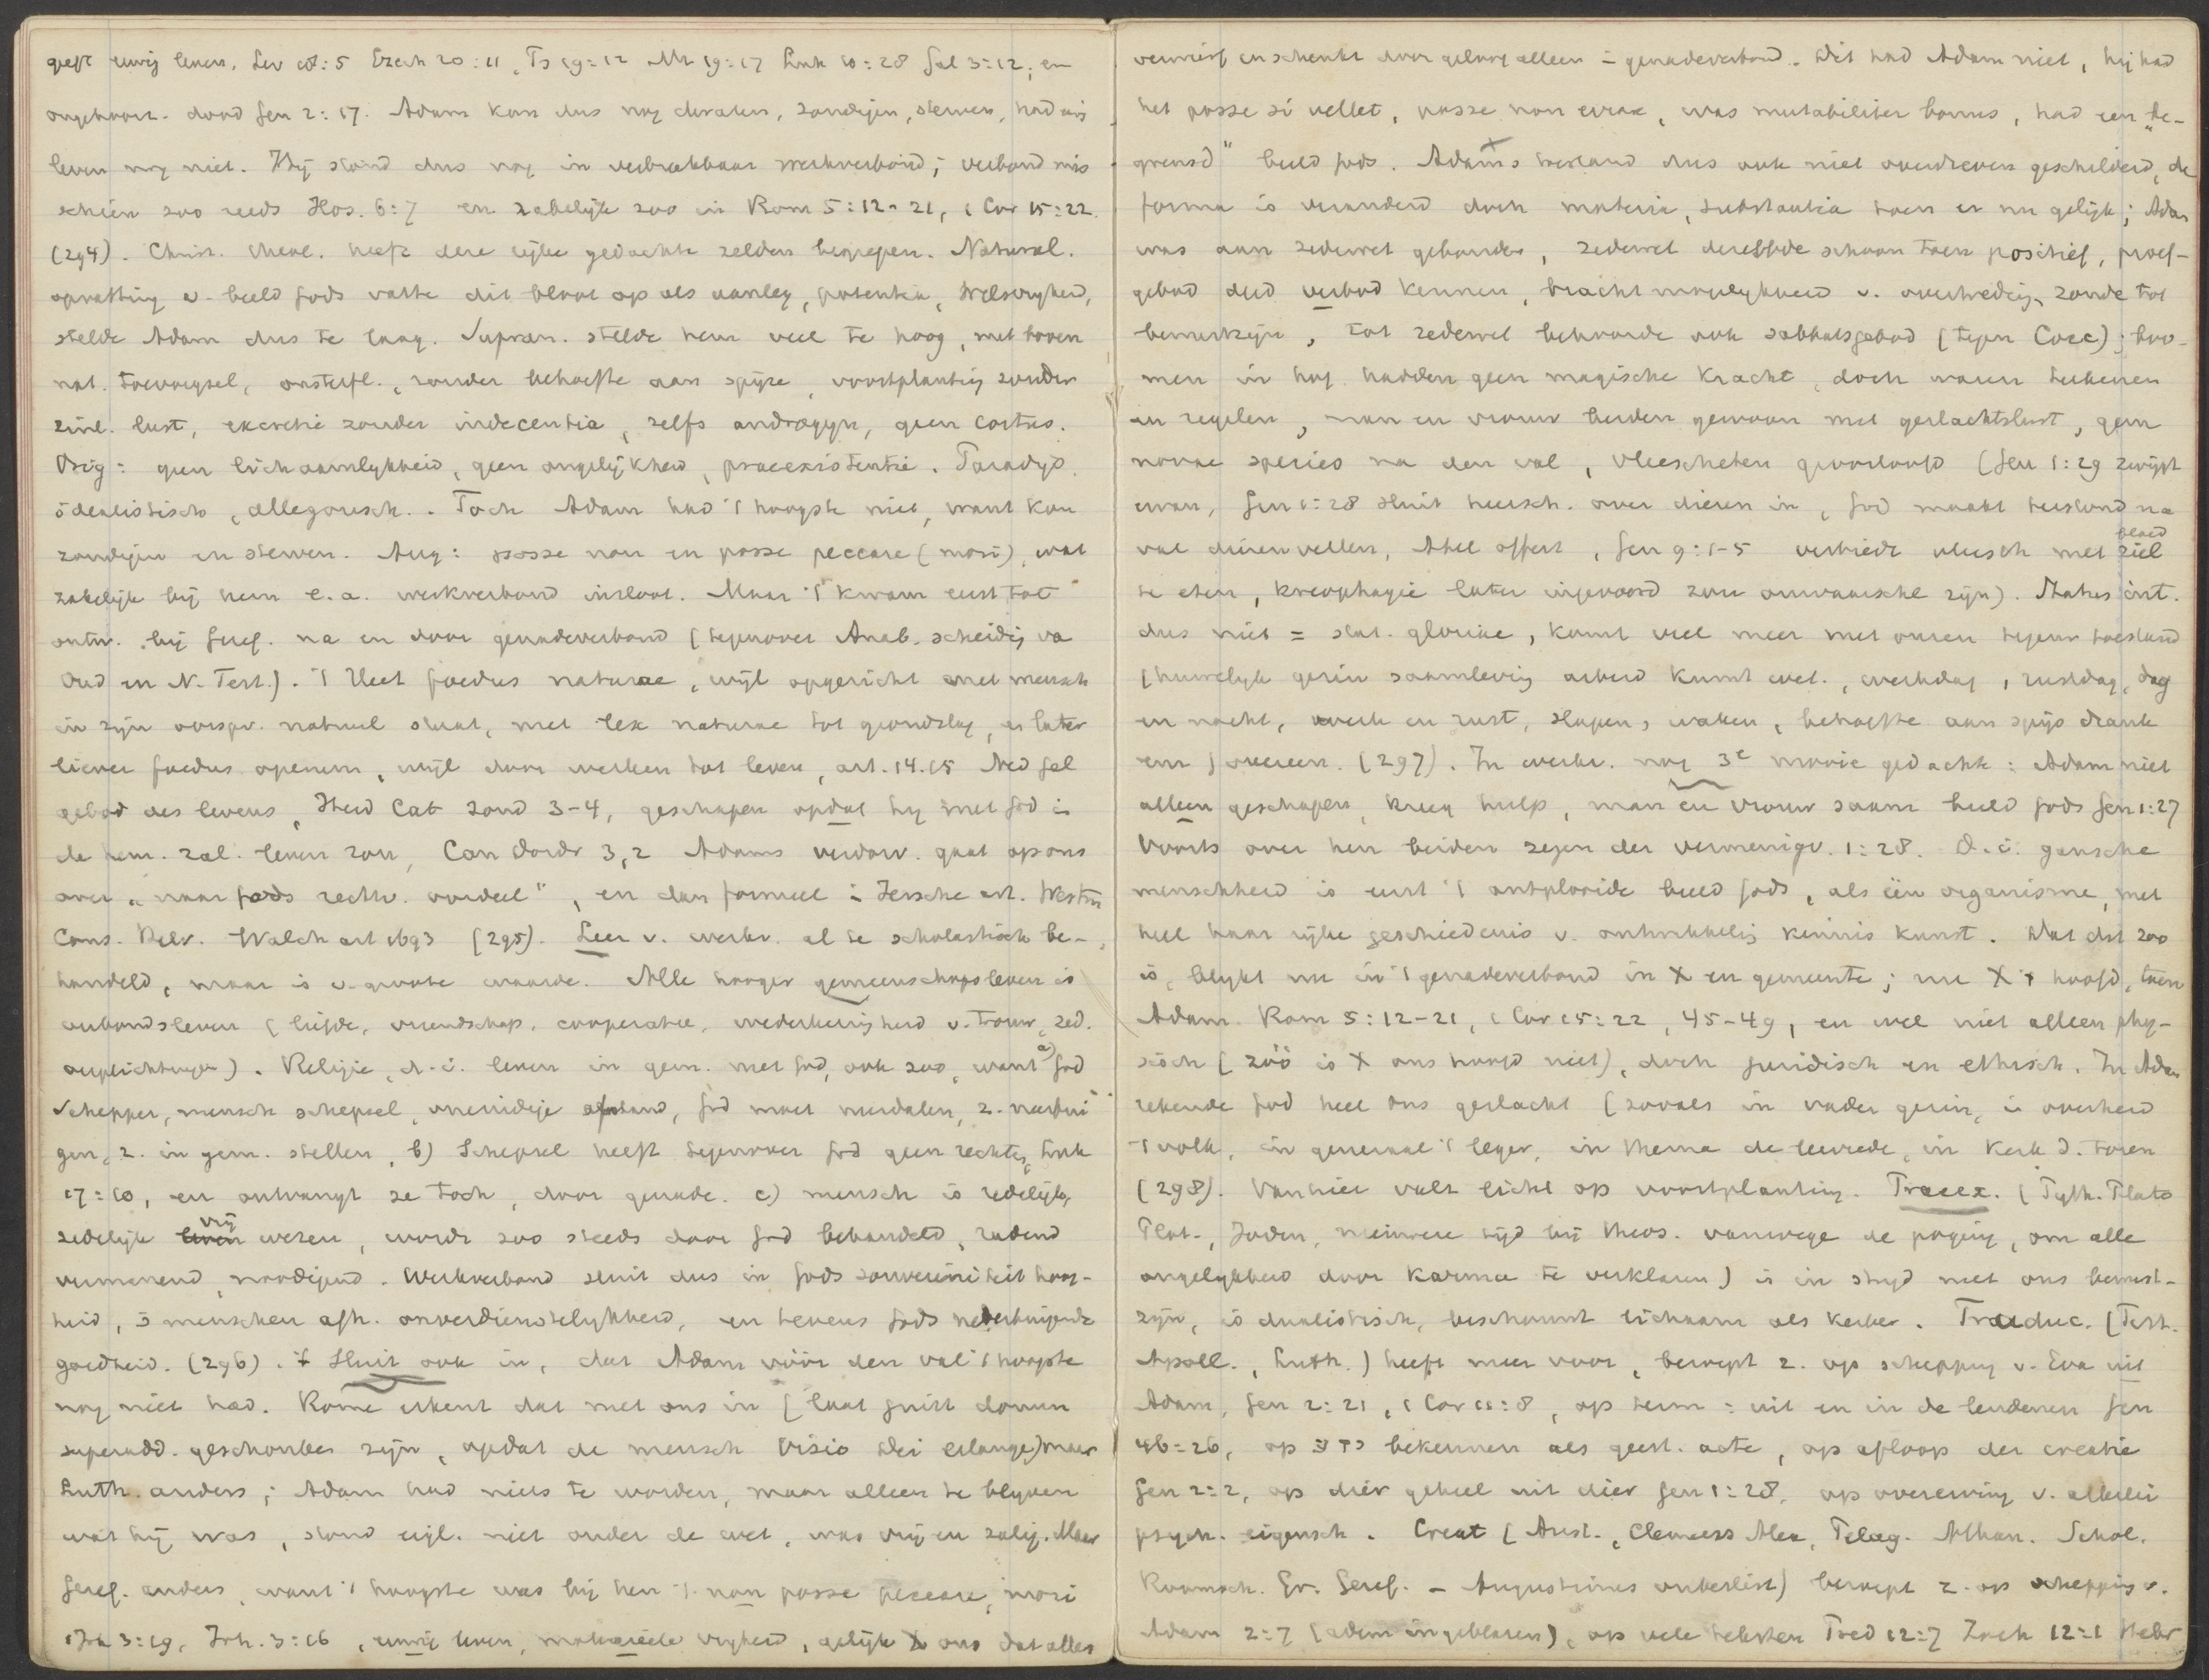 geeft eeuwig leven, Lev 18:5 Ezech 20:11, Ps 19:12 Mt 19:17 Luk 10:28 Gal 3:12; en
ongehoorz. dood Gen 2:17. Adam kon dus nog dwalen, zondigen, sterven, had eeuwig
leven nog niet. Hij stond dus nog in verbreekbaar werkverbond; verbond mis
schien zoo reeds Hos. 6:7 en zakelijk zoo in Rom 5:12-21, 1 Cor 15:22.
(294). Christ. theol. heeft deze rijke gedachte zelden begrepen. Natural.
opvatting v. beeld Gods vatte dit bloot op als aanleg, potentia, wilsvrijheid,
stelde Adam dus te laag. Supran. stelde hem veel te hoog, met boven
nat. toevoegsel, onsterfl., zonder behoefte aan spijze, voortplanting zonder
zinl. lust, excretie zonder indecentia, zelfs androgyn, geen coitus.
Orig: geen lichamelijkheid, geen ongelijkheid, praeexistentie. Paradijs
idealistisch, allegorisch. Toch Adam had 't hoogste niet, want kon
zondigen en sterven. Aug: posse non en posse peccare (mori), wat
zakelijk bij hem e.a. werkverbond insloot. Maar 't kwam eerst tot
ontw. bij Geref. na en door genadeverbond (tegenover Anab. scheiding va
Oud en N. Test.). 't Heet foedus naturae, wijl opgericht met mensch
in zijn oorspr. natuurl staat, met lex naturae tot grondslag, en later
liever foedus operum, wijl door werken tot leven, art. 14.15 Ned Gel
gebod des levens, Heid Cat Zond 3-4, geschapen opdat hij met God in
de eeuw. zal. leven zou, Can Dordr 3,2 Adams verdorv. gaat op ons
over "naar Gods rechtv. oordeel", en dan formeel in Iersche art. Westm
Cons. Helv. Walch art 1693 (295). Leer v. werkv. al te scholastisch be-
handeld, maar is v. groote waarde. Alle hooger gemeenschapsleven is
verbondsleven (liefde, vriendschap, cooperatie, wederkeerigheid v. trouw, zed.
verplichtingen). Religie, d.i. leven in gem. met God, ook zoo, want a) God
Schepper, mensch schepsel, oneindige afstand, God moet nederdalen, z. neerbui
gen, z. in gem. stellen, b) Schepsel heeft tegenover God geen rechten, Luk
17:10, en ontvangt ze toch, door genade. c) mensch is redelijk,
zedelijk vrij wezen, wordt zoo steeds door God behandeld, radend
vermanend, noodigend. Werkverbond sluit dus in Gods souvereiniteit hoog-
heid, 's menschen afh. onverdienstelijkheid, en tevens Gods nederbuigende
goedheid. (296). 't Sluit ook in, dat Adam vóór den val 't hoogste
nog niet had. Rome erkent dat met ons in (laat juist donum
superadd. geschonken zijn, opdat de mensch Visio Dei erlange) maar
Luth. anders; Adam had niets te worden, maar alleen te blijven
wat hij was, stond eigl. niet onder de wet, was vrij en zalig. Maar
Geref. anders, want 't hoogste was bij hen 't non posse peccare, mori
1 Joh 3:19, Joh. 3:16, eeuwig leven, materieele vrijheid, gelijk X ons dat alles
verwierf en schenkt door geloof alleen in genadeverbond. Dit had Adam niet, hij had
het posse si vellet, posse non errare, was mutabiliter bonus, had een "be-
grensd" beeld Gods. Adams toestand dus ook niet overdreven geschilderd, de
forma is veranderd doch materia, substantia toen en nu gelijk; Adam
was aan zedewet gebonden, zedewet dezelfde schoon toen positief, proef-
gebod deed verbod kennen, bracht mogelijkheid v. overtreding, zonde tot
bewustzijn, tot zedewet behoorde ook sabbatsgebod (tegen Cocc); boo-
men in hof hadden geen magische kracht, doch waren teekenen
en zegelen, man en vrouw beiden gewoon met geslachtslust, geen
novae species na den val, vleescheten geoorloofd (Gen 1:29 zwijgt
ervan, Gen 1:28 sluit heersch. over dieren in, God maakt terstond na
val dierenvellen, Abel offert, Gen 9:1-5 verbiedt vleesch met ziel bloed
te eten, kreophagie later ingevoerd zou onwaarschl zijn). Status int.
dus niet = stat. gloriae, komt veel meer met onzen tegenw toestand
(huwelijk gezin saamleving arbeid kunst wet., werkdag, rustdag, dag
en nacht, werk en rust, slapen, waken, behoefte aan spijs drank
enz) overeen. (297). In werkv. nog 3e mooie gedachte: Adam niet
alleen geschapen, kreeg hulp, man en vrouw saam beeld Gods Gen 1:27
Voorts over hen beiden zegen der vermenigv. 1:28. D.i. gansche
menschheid is eerst 't ontplooide beeld Gods, als één organisme, met
heel haar rijke geschiedenis v. ontwikkeling kennis kunst. Dat dit zoo
is, blijkt nu in 't genadeverbond in X en gemeente; nu X 't hoofd, toen
Adam. Rom 5:12-21, 1 Cor 15:22, 45-49, en wel niet alleen phy-
sisch (zóó is X ons hoofd niet), doch juridisch en ethisch. In Adam
rekende God heel ons geslacht (zooals in vader gezin, in overheid
't volk, in generaal 't leger, in thema de leerrede, in kerk d. toren
(298). Van hier valt licht op voortplanting. Praeex. (Pyth. Plato
Plot., Joden, nieuwere tijd bij theos. vanwege de poging, om alle
ongelijkheid door Karma te verklaren) is in strijd met ons bewust-
zijn, is dualistisch, beschouwt lichaam als kerker. Traduc. (Tert.
Apoll., Luth.) heeft meer voor, beroept z. op schepping v. Eva uit
Adam, Gen 2:21, 1 Cor 11:8, op term: uit en in de lendenen Gen
46:26, op ידע bekennen als geest. acte, op afloop der creatie
Gen 2:2, op dier geheel uit dier Gen 1:28, op overerving v. allerlei
psych. eigensch. Creat (Arist., Clemens Alex, Pelag. Athan. Schol.
Roomsch. Gr. Geref. - Augustinus onbeslist) beroept z. op schepping v.
Adam 2:7 (adem ingeblazen), op vele teksten Pred 12:7 Zach 12:1 Hebr